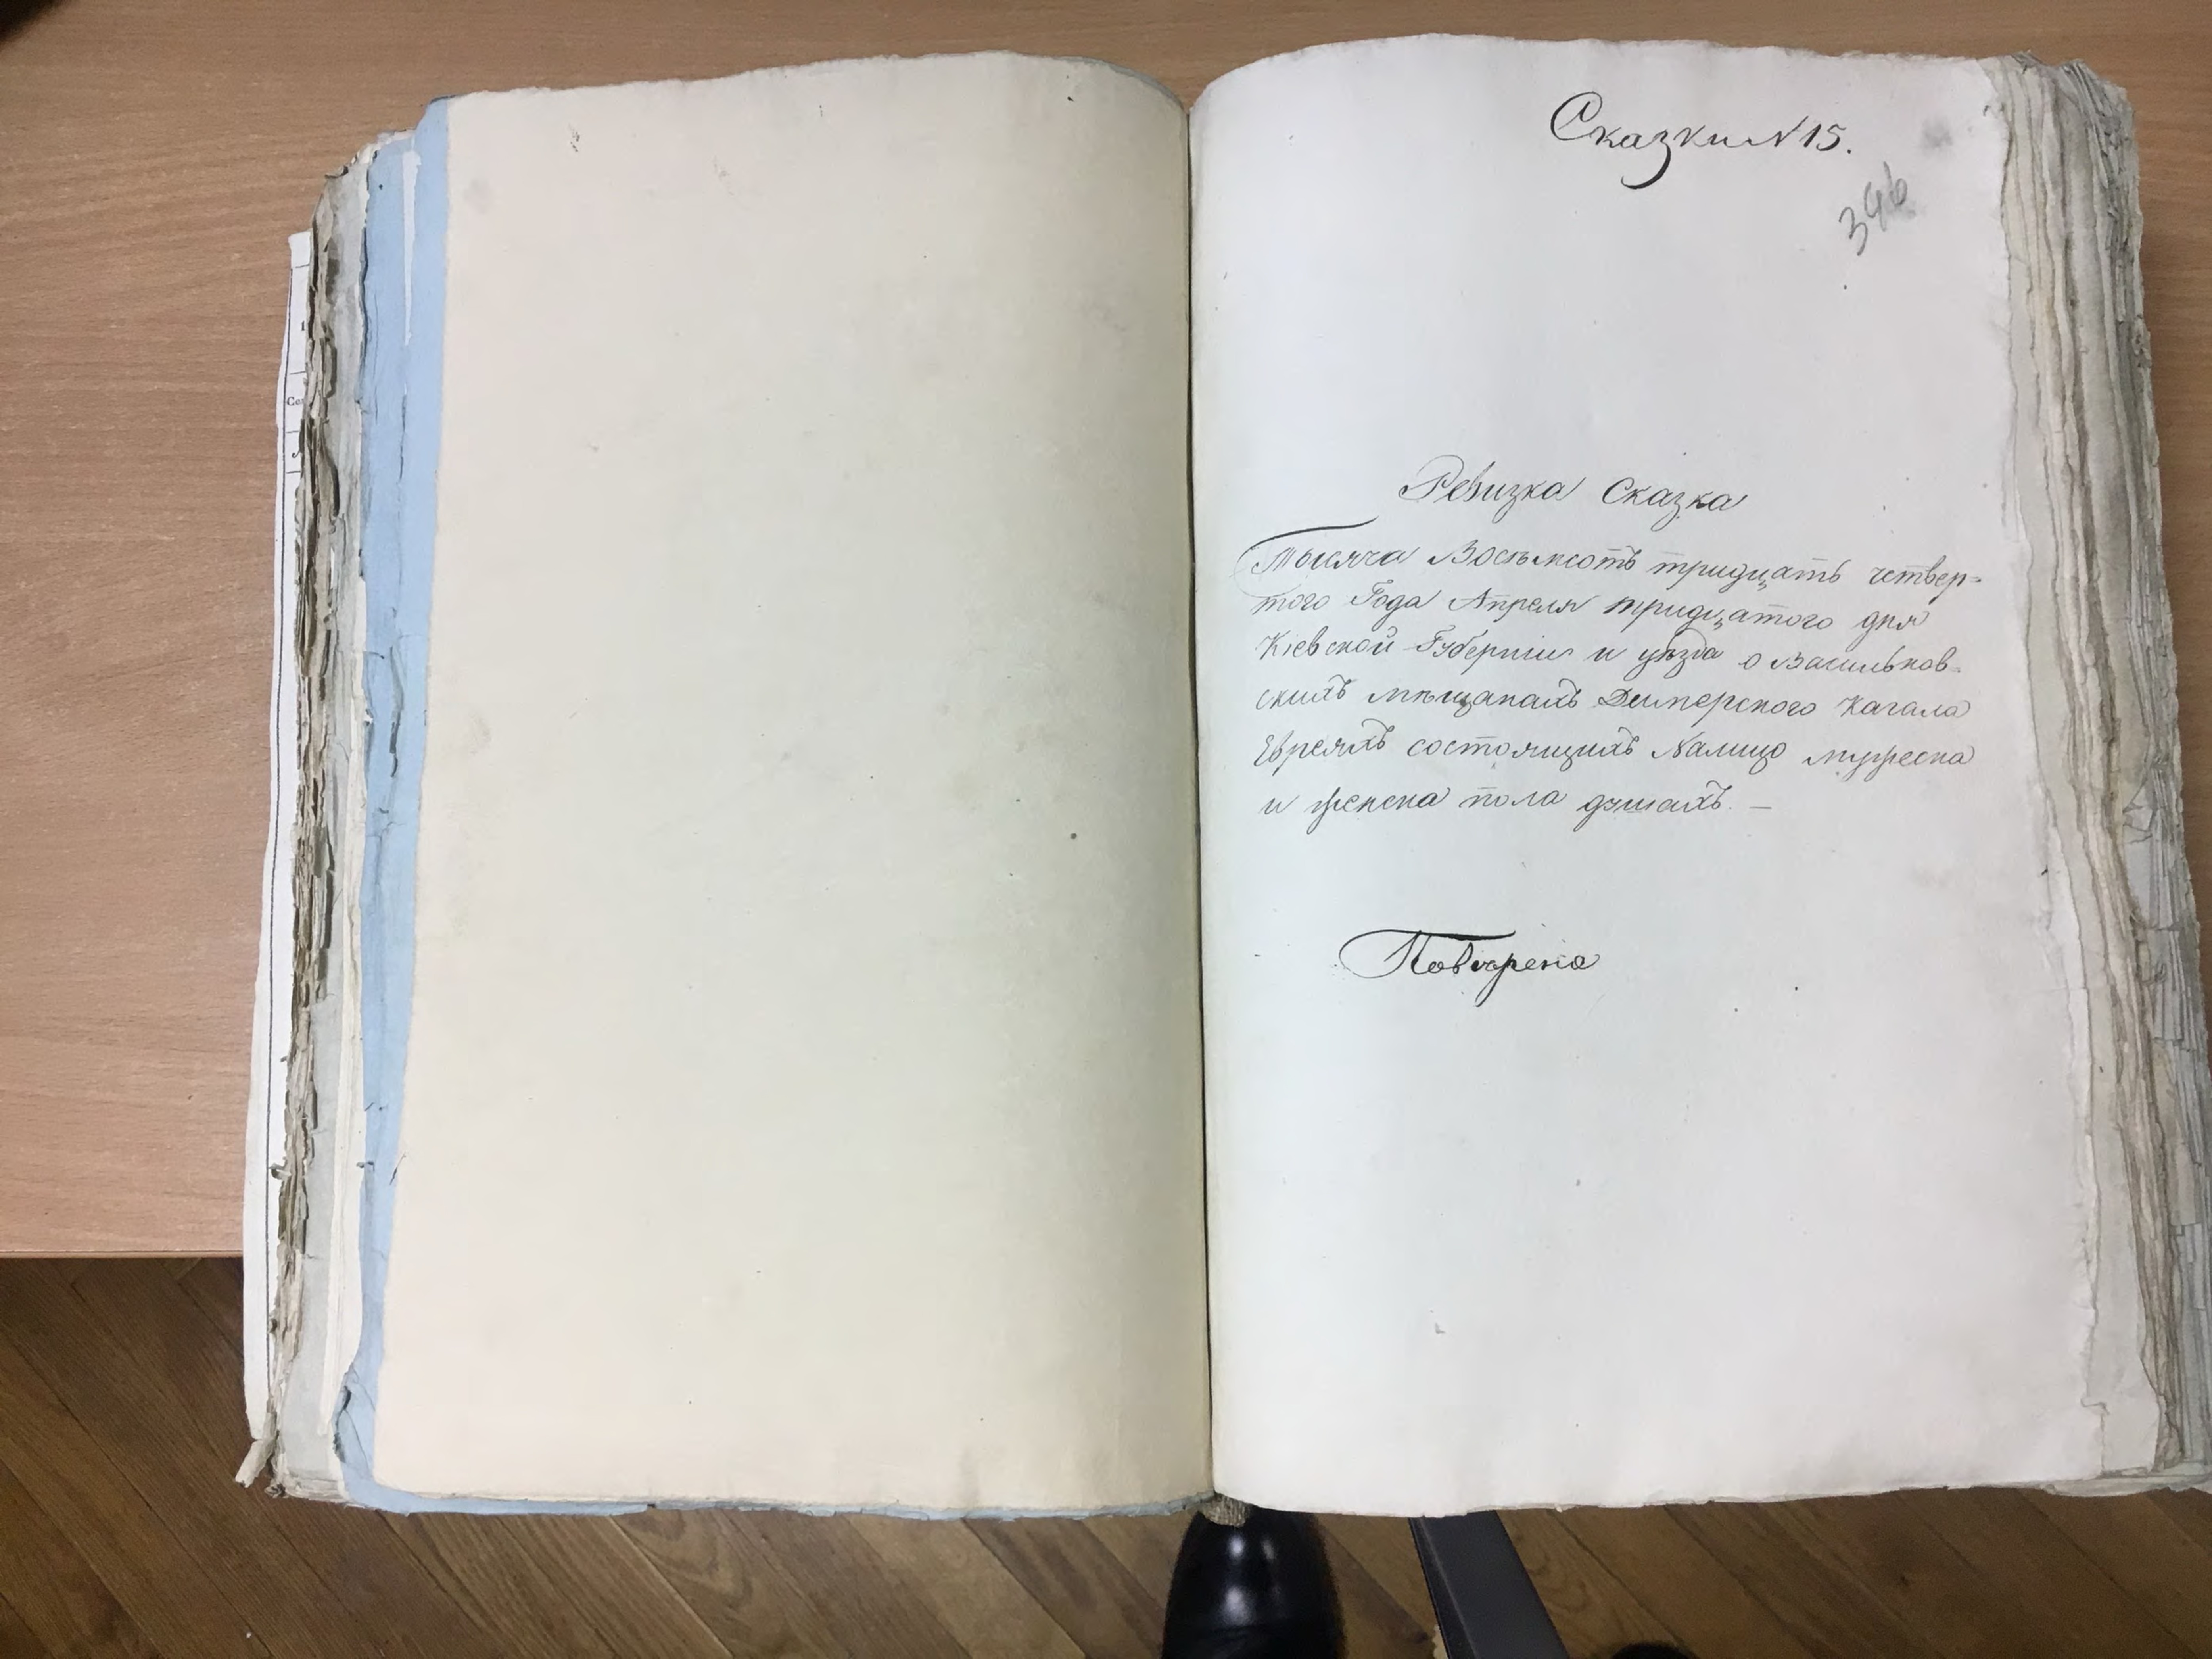 Сказки N 15.
346
Ревизка Сказка
Тысяча Восьмсотъ тридцать четвер-
того Года Апреля тридцатого дня
Кіевской Губерніи и уѣзда о Васильков-
скихъ мѣщанахъ Димерского Кагала
Евреяхъ состоящихъ Налицо мужеска
и женска пола душахъ. —
Поверена